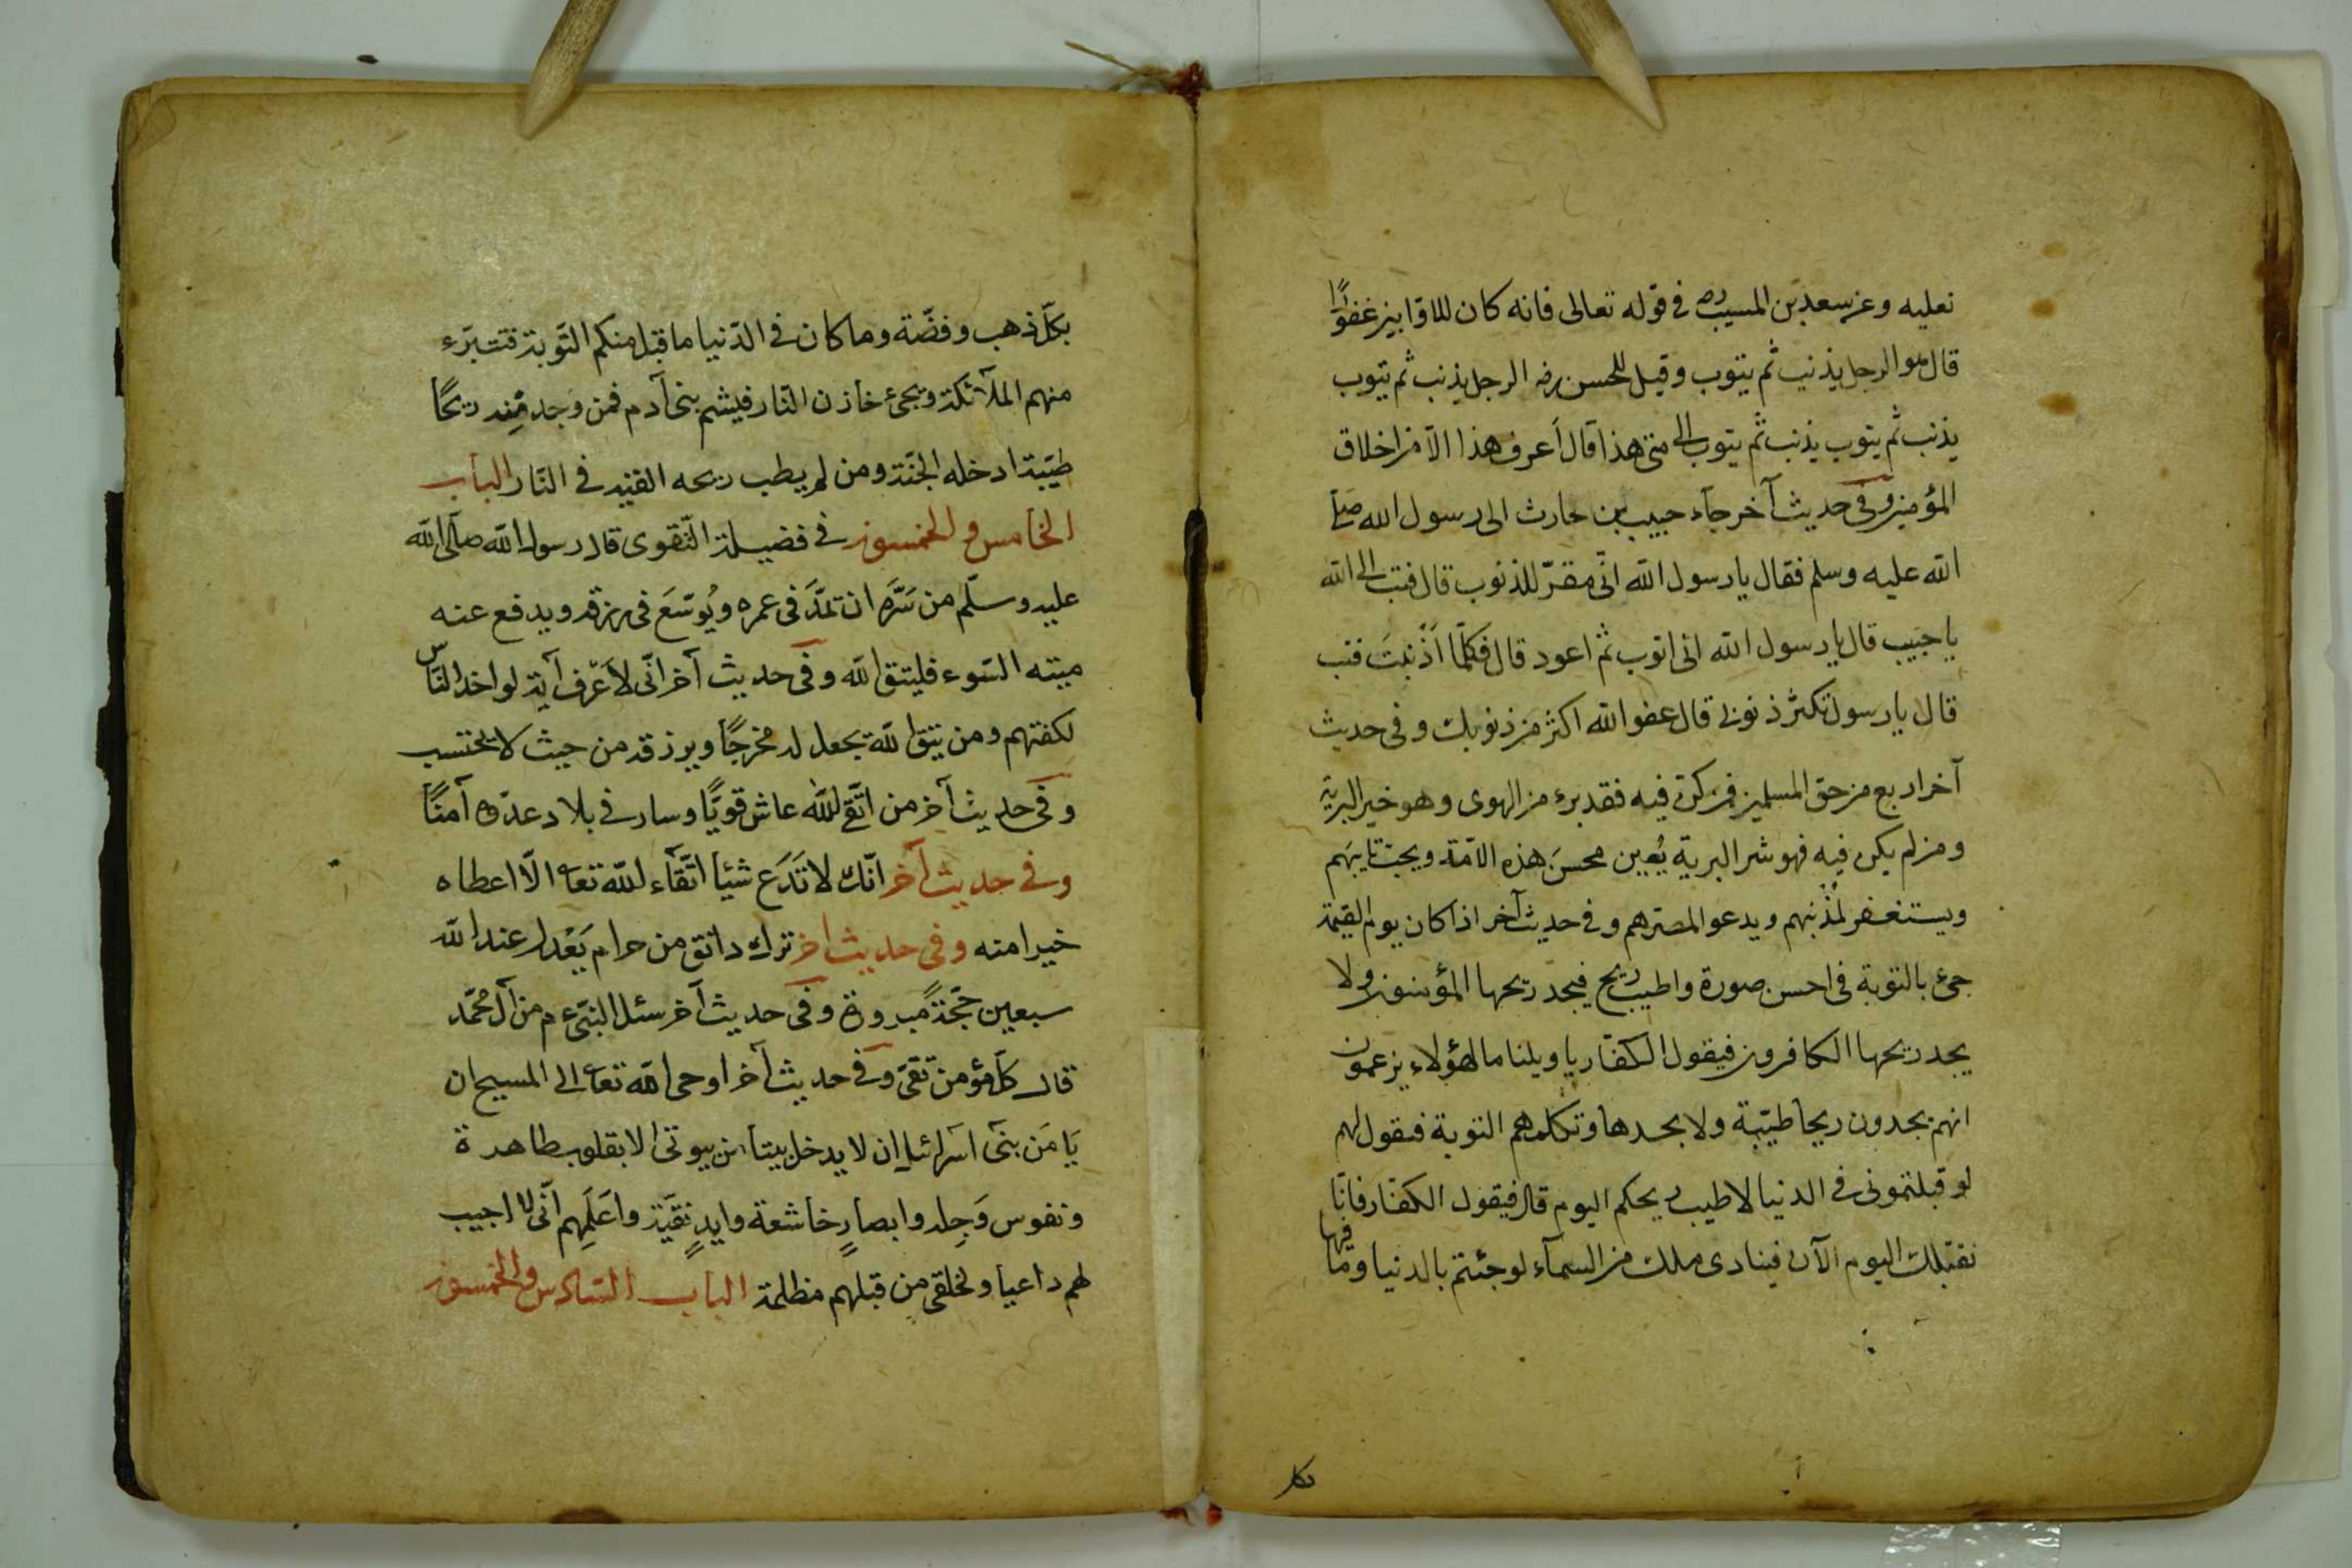 تعليه وعن سعد بن المسيب ره فى قوله تعالى فانه كان للاوابين غفورًا
قال هو الرجل يذنب ثم يتوب وقيل للحسن رضه الرجل يذنب ثم يتوب
يذنب ثم يتوب يذنب ثم يتوب الى متى هذا قال أعرف هذا الا من اخلاق
المؤمنين وفى حديث آخر جآء حبيب بن حارث الى رسول الله صلى
الله عليه وسلم فقال يا رسول الله انّى مقرّ للذنوب قال فتب الى الله
يا حبيب قال يا رسول الله انى اتوب ثم اعود قال فكلّما اَذْنبتَ فتب
قال يا رسول تكثر ذنوبى قال عفو الله اكثر من ذنوبك وفى حديث
آخر اربع من حق المسلمين فمن كن فيه فقد برء من الهوى وهو خير البرية
ومن لم يكن فيه فهو شر البرية يُعين محسنَ هذه الامّة ويحبّ تايبَهم
ويستغفر لمُذْنبهم ويدعو المصرهم وفى حديث آخر اذا كان يوم القيمة
جئ بالتوبة فى احسن صورة واطيب ريح فيجد ريحها المؤمنون ولا
يجد ريحها الكافرون فيقول الكفار يا ويلنا ما لهؤلاء يزعمون
انهم يجدون ريحا طيّبة ولا نجدها وتكلمهم التوبة فتقول لهم
لو قبلتمونى فى الدنيا لاطيب ريحكم اليوم قال فيقول الكفّار فانّا
نقبلك اليوم الآن فينادى ملك من السمآء لو جئتم بالدنيا وما فيها
بكل
بكلّ ذهب وفضّة وما كان فى الدّنيا ما قبل منكم التّوبة فتتبرّء
منهم الملآئكة ويجئ خازن النّار فيشم بنى آدم فمن وجد مِنه ريحًا
طيّبة ادخله الجنّة ومن لم يطب ريحه القيه فى النّار الباب
الخامس والخمسون فى فضيلة التّقوى قال رسول الله صلّى الله
عليه وسلّم من سَرَّه ان تمدَّ فى عمره ويُوسّعَ فى رزقه ويدفع عنه
ميته السّوء فليتق الله وفى حديث آخر انّى لأعرف آية لو اخذ النّاس
لكفتهم ومن يتق الله يجعل له مخرجًا ويرزقه من حيث لا يحتسب
وفى حديث آخر من اتّقى الله عاش قويًّا وسار فى بلاد عدوّه آمنًا
وفى حديث آخر انّك لا تَدَع شيئا اتّقآء الله تعا الّا اعطاه
خيرا منه وفى حديث اخر ترك دانق من حرام يَعْدل عند الله
سبعين حَجّةً مبرورة وفى حديث آخر سئل النبّى ع م من آل محمّد
قال كلّ مؤمن تقىّ وفى حديث آخر اوحى الله تعا الى المسيح ان
يَا مَن بنى اسرائيل ان لا يدخل بيتا من بيوتى الا بقلوب طاهرة
ونفوس وَجِله وابصارٍ خاشعة وايدٍ نقيّة واعَلِمهم انّى لا اجيب
لهم داعيا ولخلقى من قبلهم مظلمة الباب السّادس والخمسون